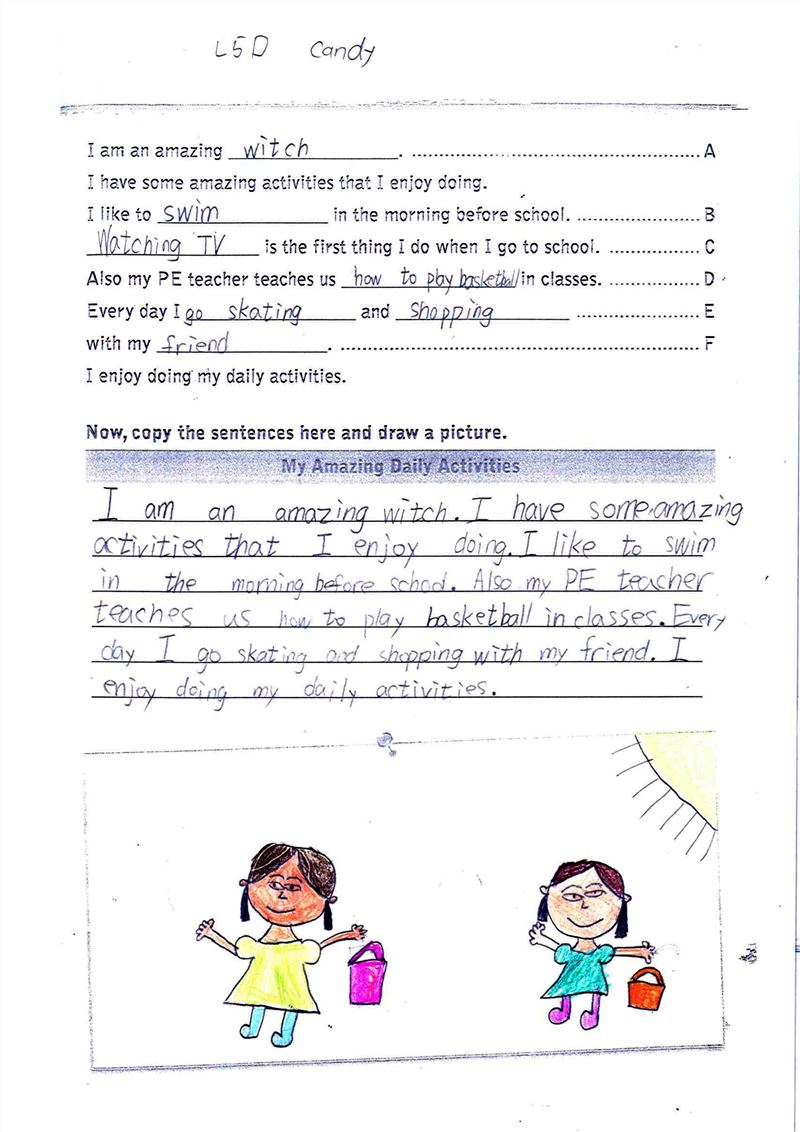 L5D Candy
I am an amazing witch. A
I have some amazing activities that I enjoy doing.
I like to swim in the morning before school. B
Watching TV is the first thing I do when I go to school. C
Also my PE teacher teaches us how to play basketball in classes. D
Every day I go skating and shopping E
with my friend. F
I enjoy doing my daily activities.
Now, copy the sentences here and draw a picture.
My Amazing Daily Activities
I am an amazing witch. I have some amazing
activities that I enjoy doing. I like to swim
in the morning before school. Also my PE teacher
teaches us how to play basketball in classes. Every
day I go skating and shopping with my friend. I
enjoy doing my daily activities.